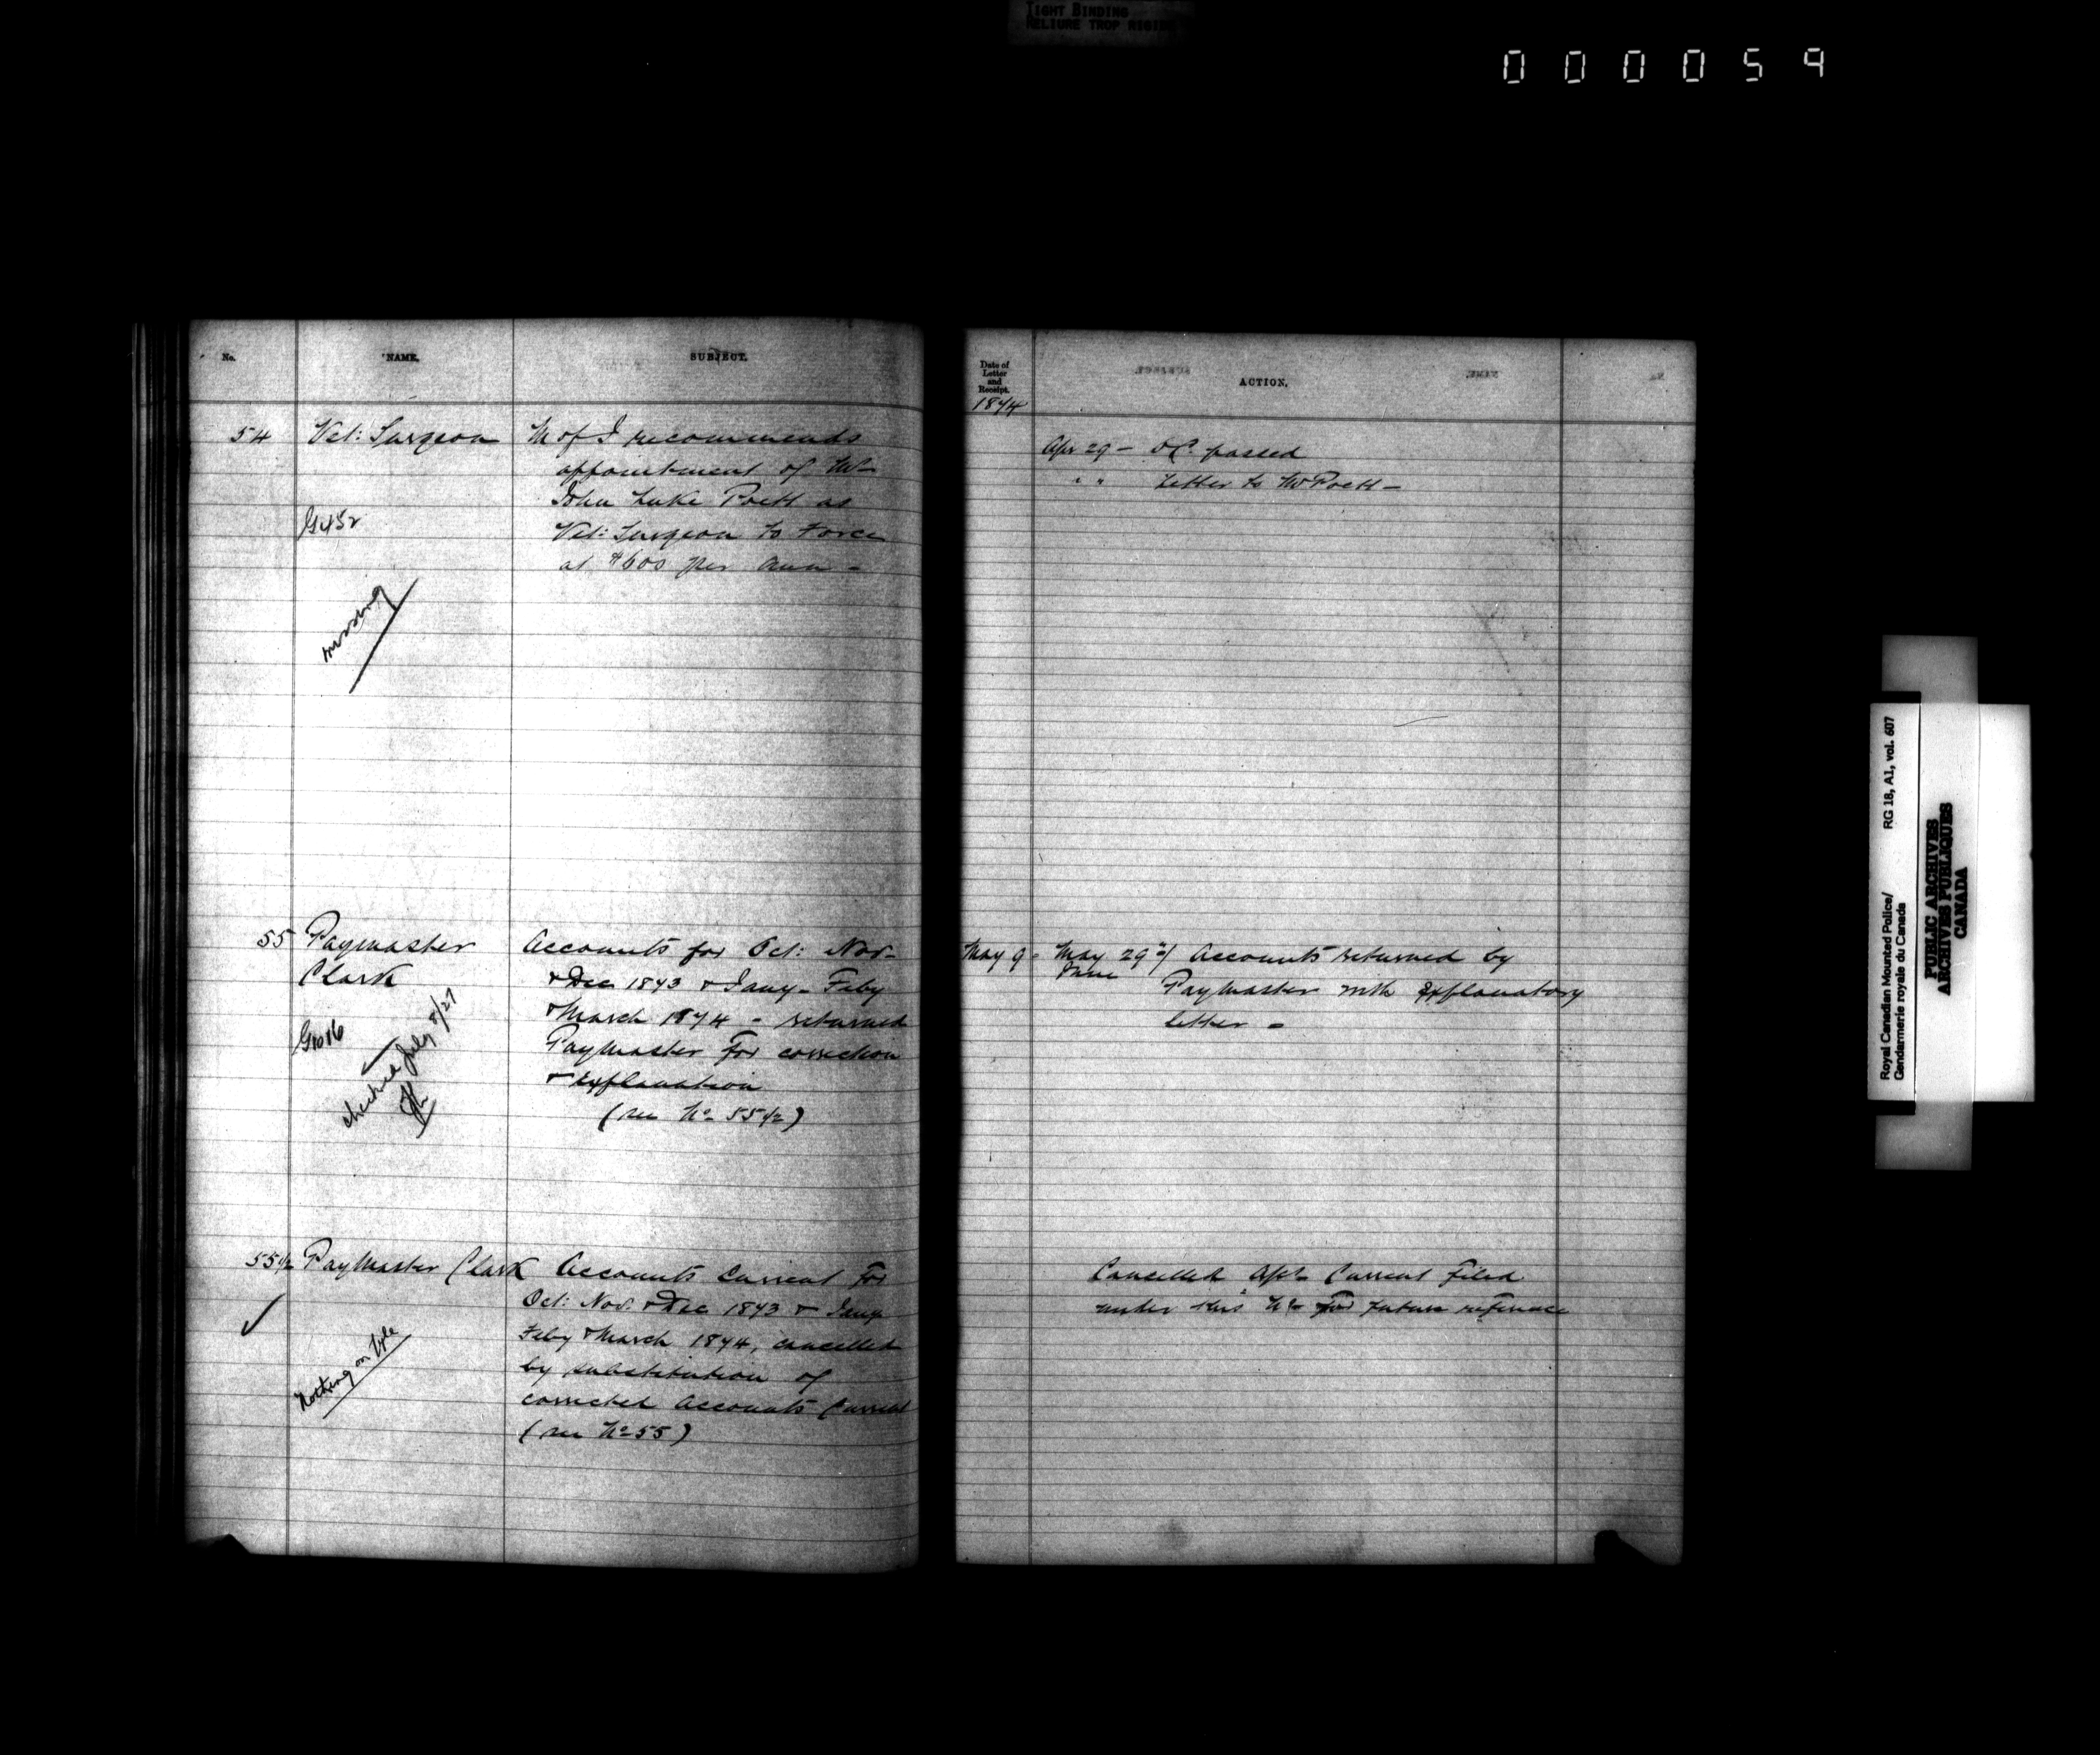 TIGHT BINDING
RELIURE TROP RIGIDE
000059
No.
NAME.
SUBJECT.
54
Vet: Surgeon
M of I recommends
appointment of Mr
John Luke Poett as
Vet: Surgeon to Force
at $600 per ann -
G452
missing
55
Paymaster
Clark
Accounts for Oct: Nov-
& Dec 1873 & Jany - Feby
& March 1874 - returned
Paymaster for correction
& explanation
(see No 55 1/2)
checked July 8/27
55 1/2
Paymaster Clark
Accounts Current for
Oct: Nov. & Dec 1873 & Jany
Feby & March 1874, cancelled
by substitution of
corrected Accounts Current
(see No 55)
Nothing on file
Date of
Letter
and
Receipt.
1874
ACTION.
Apr 29 - OC. passed
" " Letter to Mr Poett -
May 9 - May 29th/ Accounts returned by
Paymaster with explanatory
letter -
Cancelled Accts Current filed
under this No for future reference
Royal Canadian Mounted Police/
Gendarmerie royale du Canada
RG 18, A1, vol. 607
PUBLIC ARCHIVES
ARCHIVES PUBLIQUES
CANADA